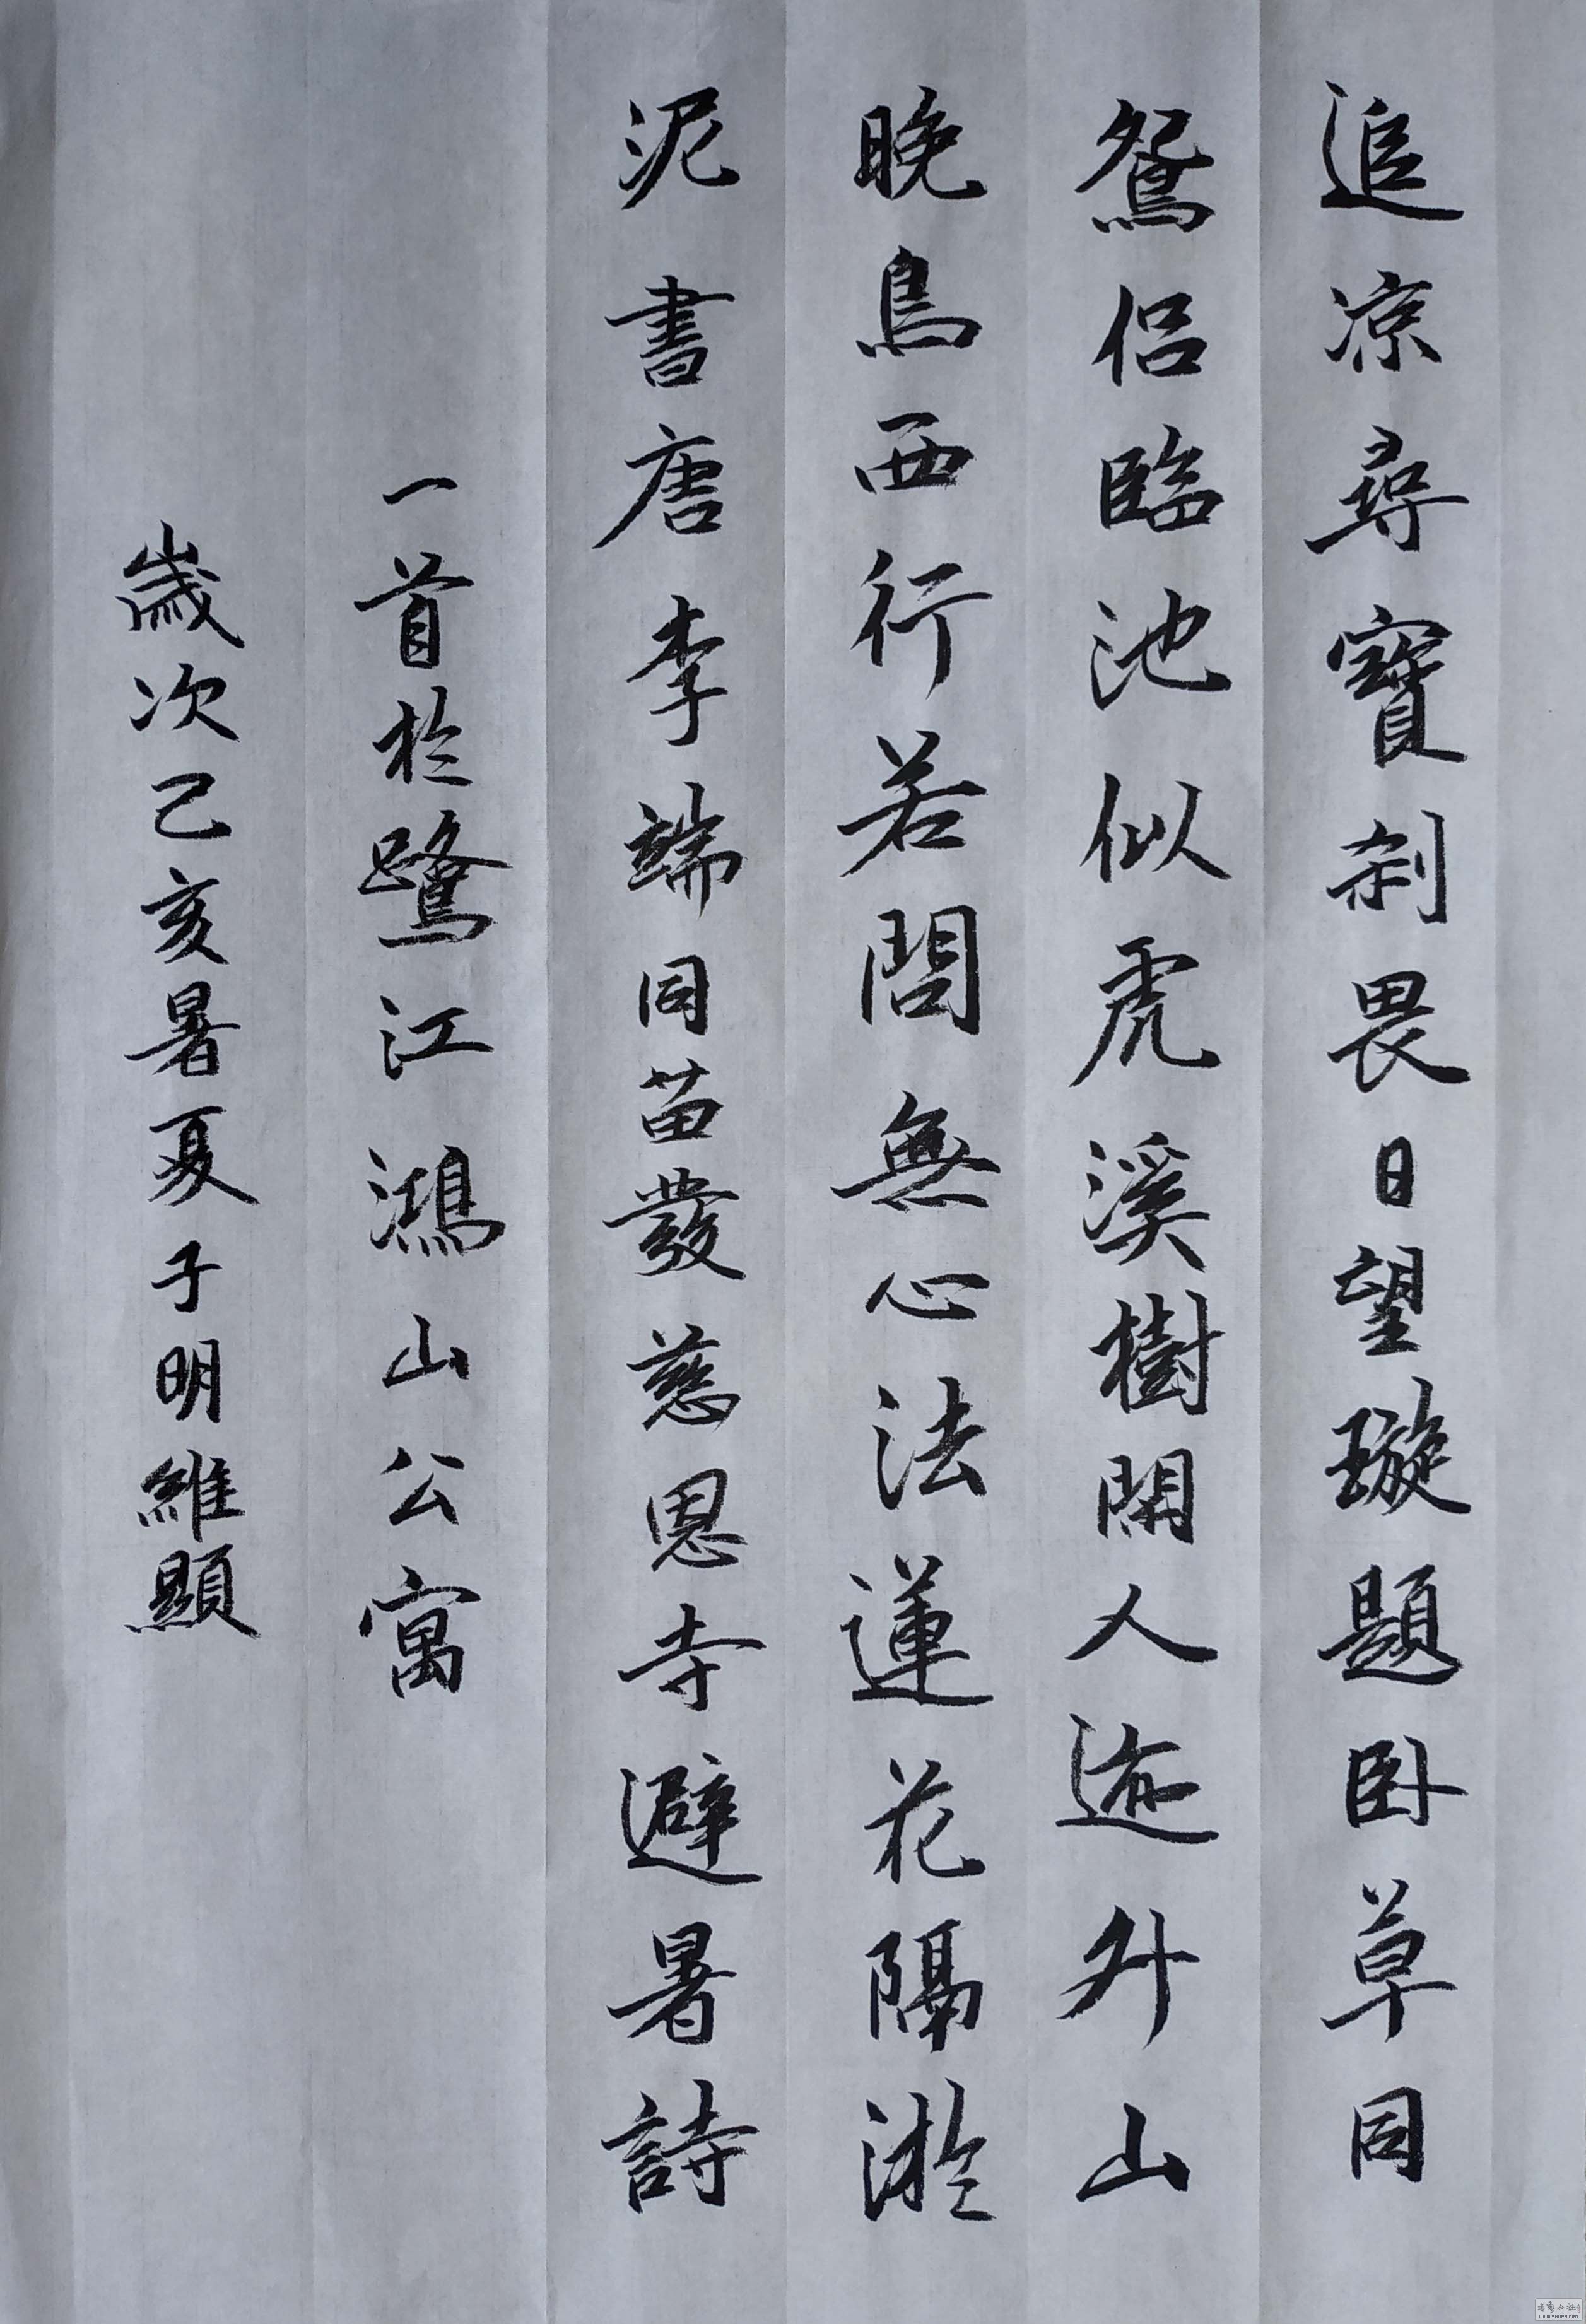 追凉尋寶刹畏日望璇題卧草同
鴛侣臨池似虎溪樹閑人迹外山
晚鳥西行若問無心法蓮花隔淤
泥書唐李端同苗發慈恩寺避暑詩
一首於鷺江鴻山公寓
歲次己亥暑夏子明維顯